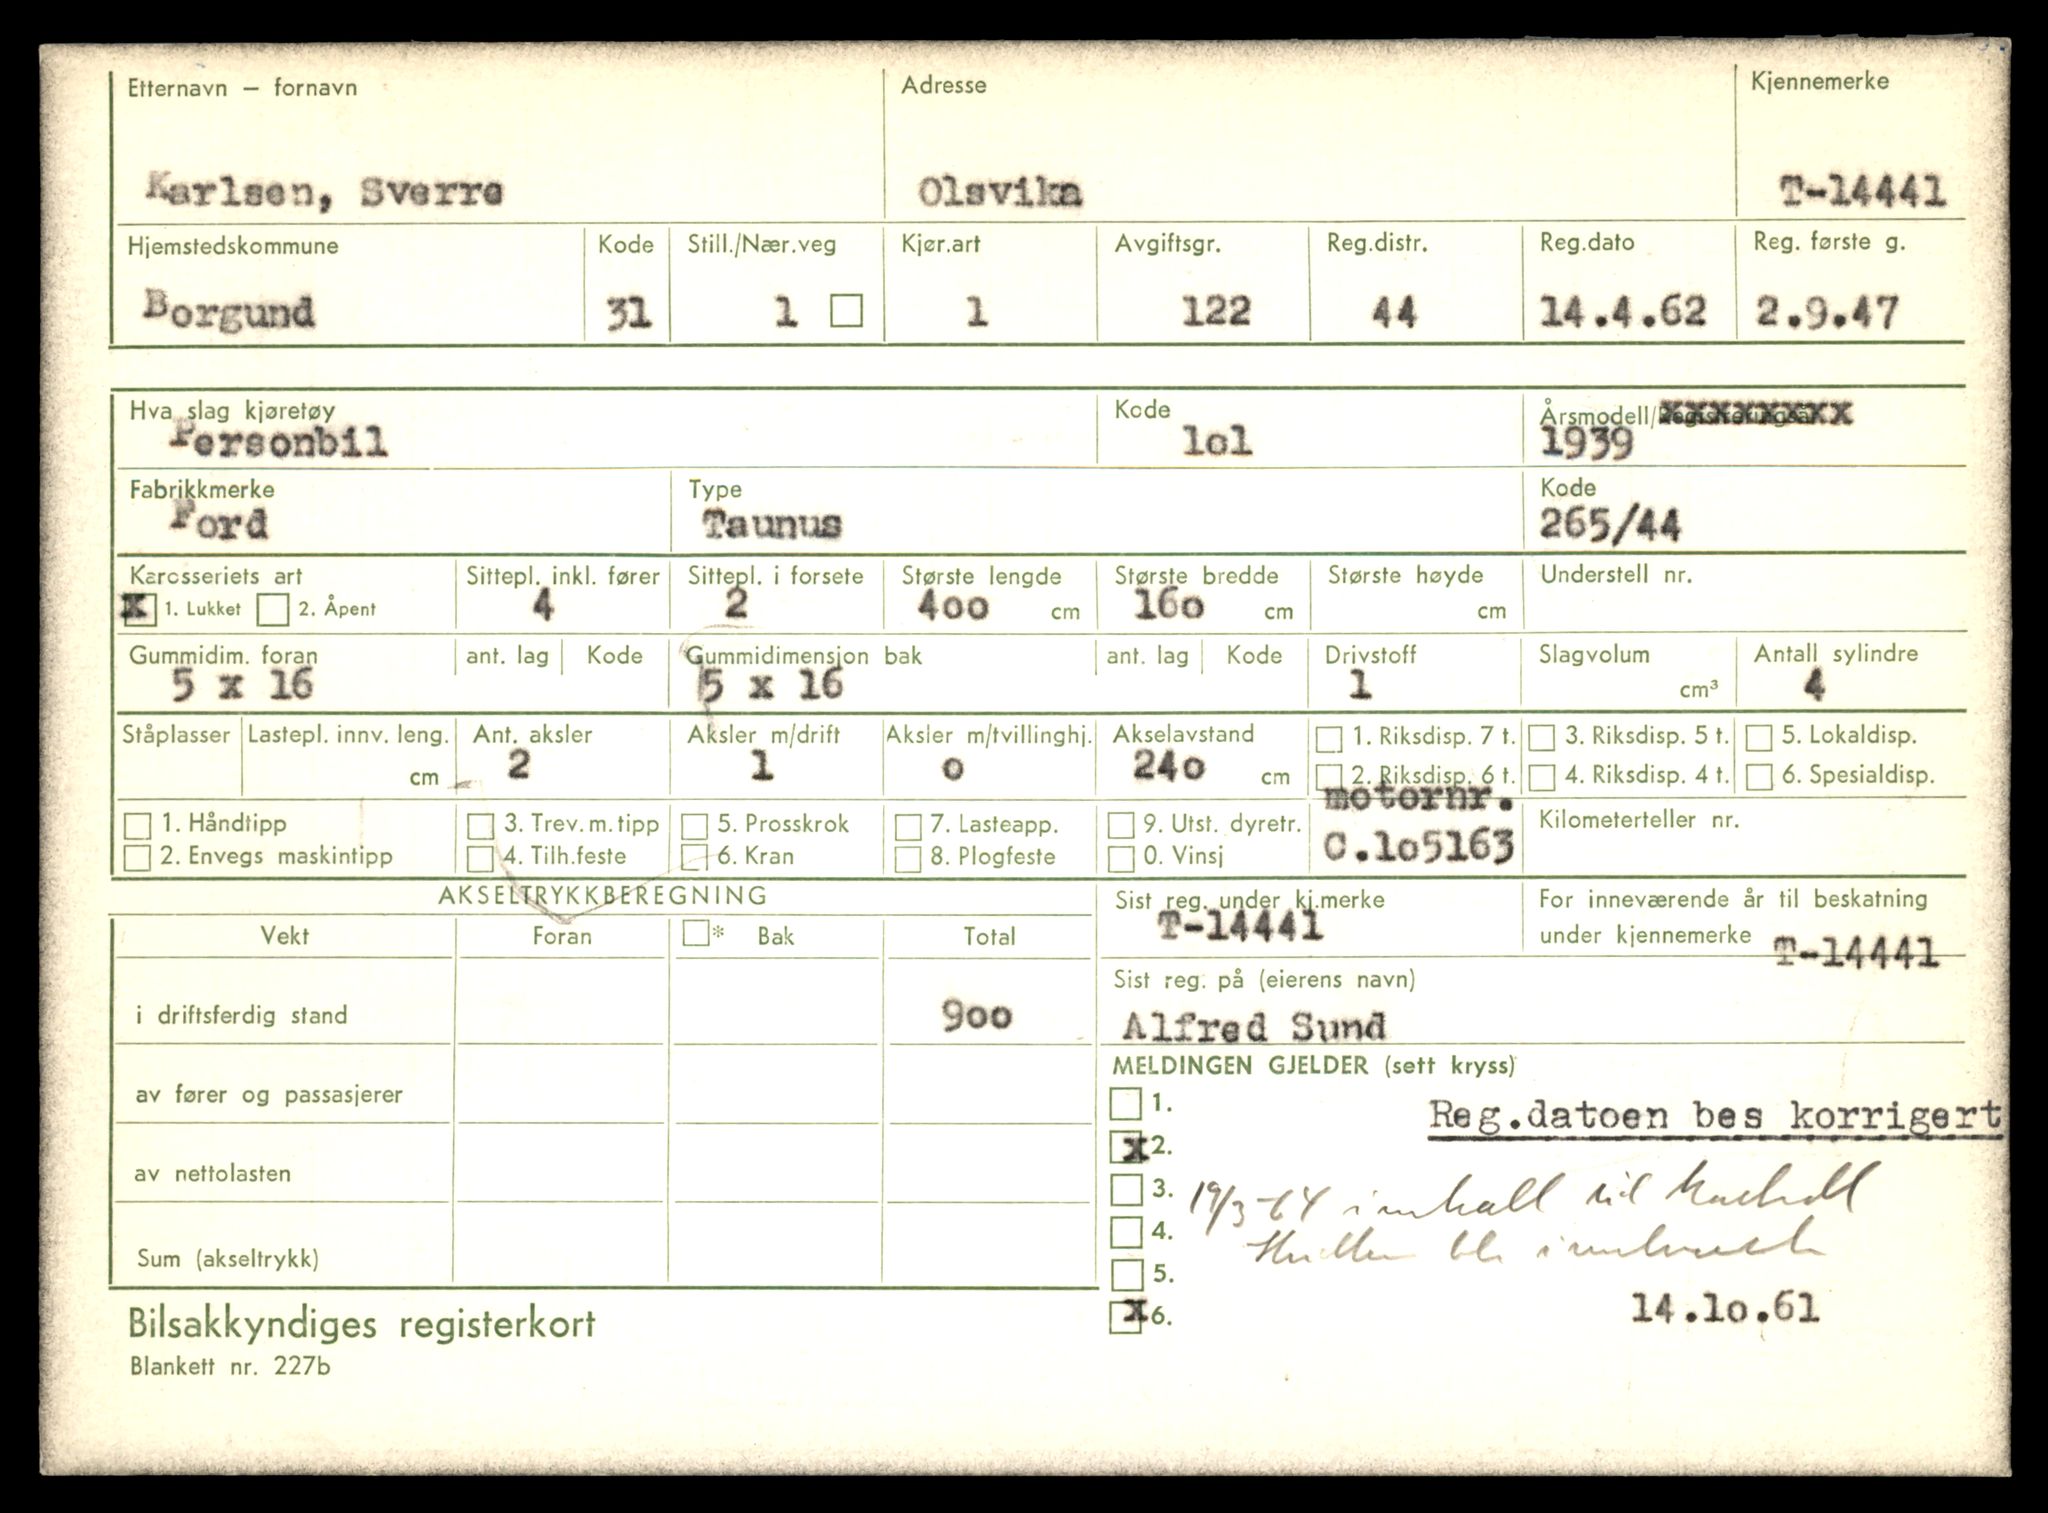 Etternavn – fornavn Adresse Kjennemerke
Karlsen, Sverre Olsvika T-14441
Hjemstedskommune Kode Still./Nær.veg Kjør.art Avgiftsgr. Reg.distr. Reg.dato Reg. første g.
Borgund 31 1 1 122 44 14.4.62 2.9.47
Hva slag kjøretøy Kode Årsmodell/Registreringsår
Personbil lol 1939
Fabrikkmerke Type Kode
Ford Taunus 265/44
Karosseriets art Sittepl. inkl. fører Sittepl. i forsete Største lengde Største bredde Største høyde Understell nr.
x 1. Lukket 2. Åpent 4 2 4oo cm 16o cm cm
Gummidim. foran ant. lag Kode Gummidimensjon bak ant. lag Kode Drivstoff Slagvolum Antall sylindre
5 x 16 5 x 16 1 cm³ 4
Ståplasser Lastepl. innv. leng. Ant. aksler Aksler m/drift Aksler m/tvillinghj. Akselavstand 1. Riksdisp. 7 t. 3. Riksdisp. 5 t. 5. Lokaldisp.
cm 2 1 o 24o cm 2. Riksdisp. 6 t. 4. Riksdisp. 4 t. 6. Spesialdisp.
motornr.
1. Håndtipp 3. Trev. m. tipp 5. Prosskrok 7. Lasteapp. 9. Utst. dyretr. Kilometerteller nr.
2. Envegs maskintipp 4. Tilh.feste 6. Kran 8. Plogfeste 0. Vinsj C.lo5163
AKSELTRYKKBEREGNING Sist reg. under kj.merke For inneværende år til beskatning
T-14441
Vekt Foran * Bak Total under kjennemerke T-14441
Sist reg. på (eierens navn)
i driftsferdig stand 9oo Alfred Sund
MELDINGEN GJELDER (sett kryss)
av fører og passasjerer 1. Reg.datoen bes korrigert
x 2.
av nettolasten 3. 19/3-64 innkalt til kontroll
4.
Sum (akseltrykk) 5.
x 6. 14.lo.61
Bilsakkyndiges registerkort
Blankett nr. 227b